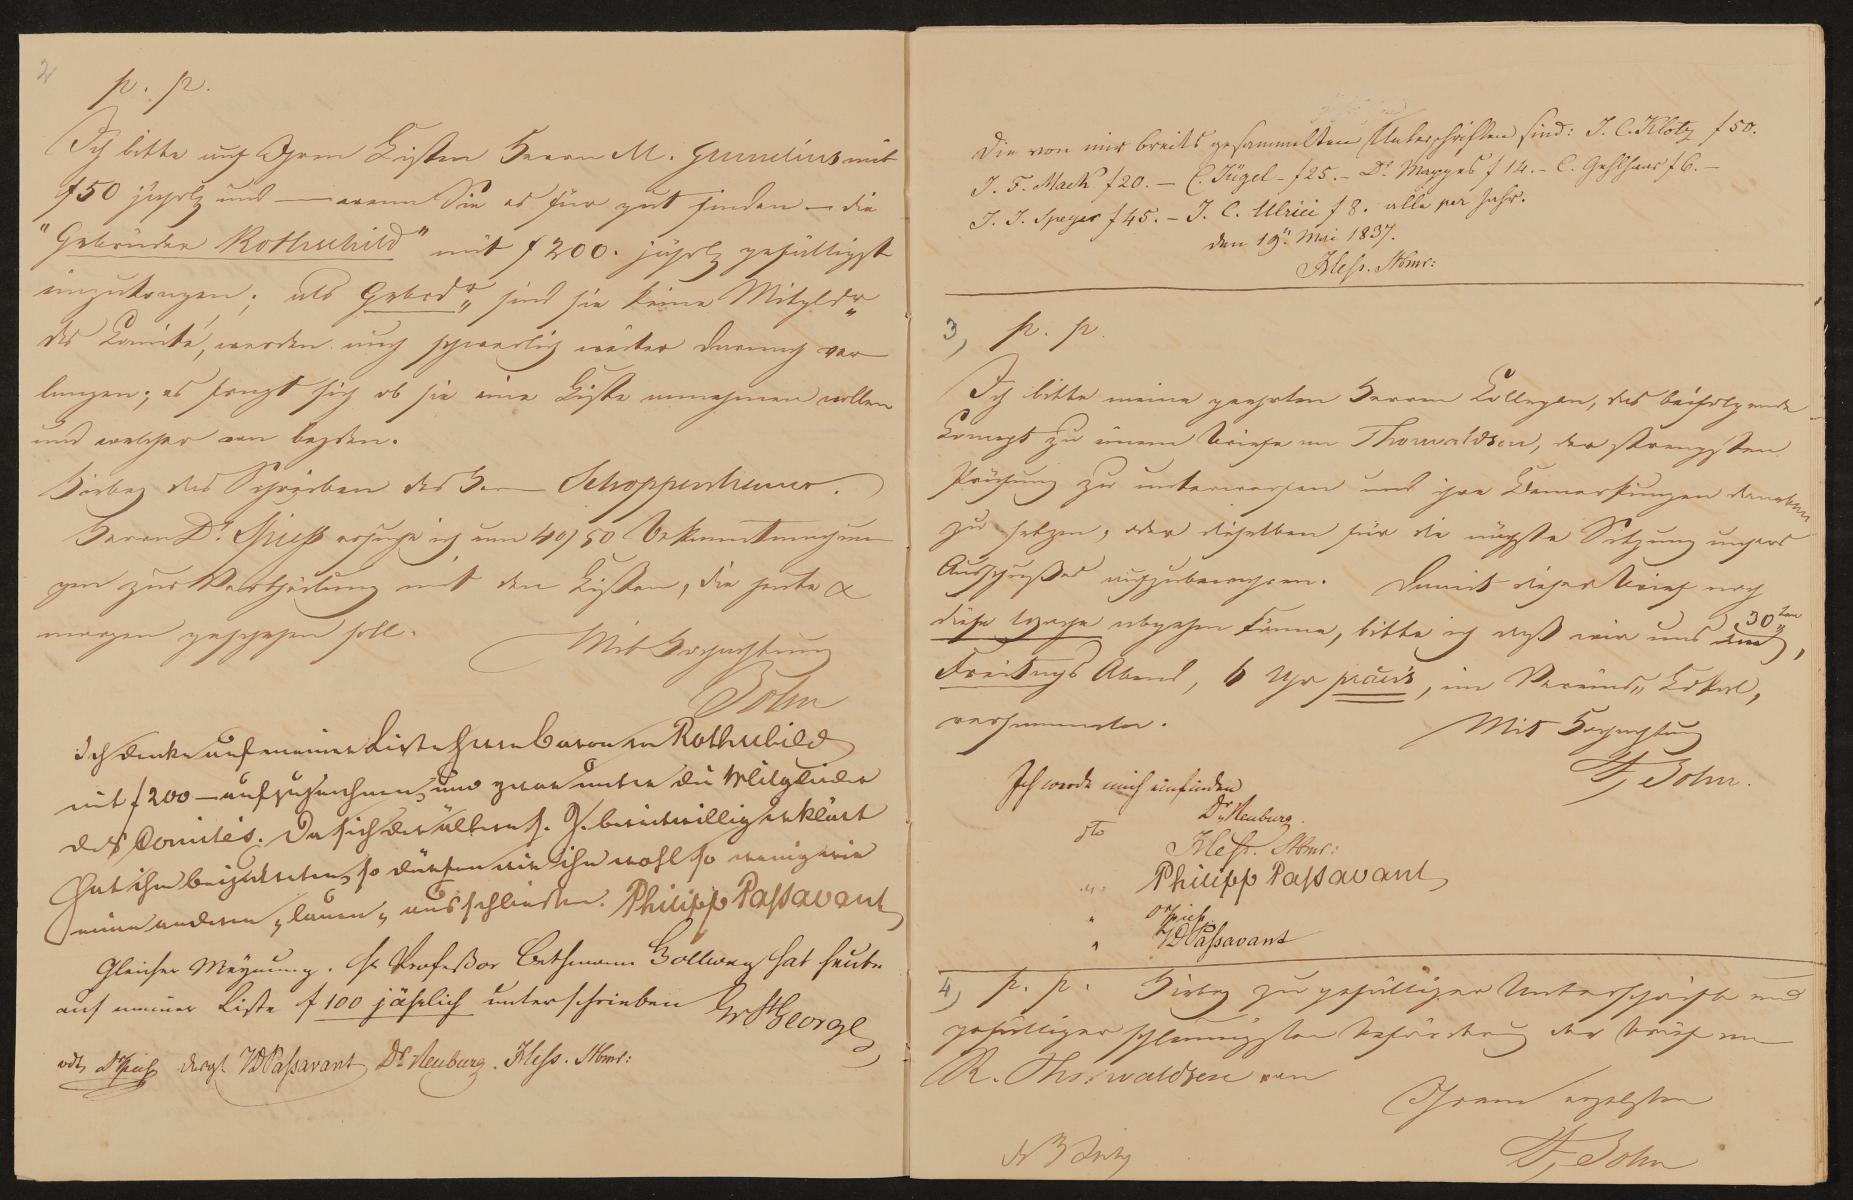 2
p. p.
Ich bitte auf Ihren Listen Herrn M. Gunelius mit
f 50 jährlg und — wenn Sie es für gut finden — die
"Gebrüder Rothschild" mit f 200. jährlg gefälligst
einzutragen; als Gebrdr. sind sie keine Mitgldr
des Comité, werden auch schwerlich weiter darnach ver-
langen; es fragt sich ob sie eine Liste annehmen wollen
und welcher von beyden.
Hirbey das Schreiben des H Schoppenhauer.
Herrn Dr. Spiess ersuche ich um 40/50 Bekanntmachun-
gen zur Vertheilung mit den Listen, die heute &
morgen geschehen soll.
Mit Hochachtung
John
Ich denke auf meiner Liste Herrn Baron von Rothschild
mit f 200 — aufzunehmen, und zwar unter die Mitglieder
des Comités. Da sich der ältere H. R. bereitwillig erklärt
hat ihm beizutreten, so dürfen wir ihn wohl so wenig wie
einen anderen "lauen" ausschliessen. Philipp Passavant
Gleicher Meynung. Hr Professor Bethmann Hollweg hat heute
auf meiner Liste f 100 jährlich unterschrieben W StGeorge
Dr Spiess desgl JDPassavant Dr. Neuburg. F. Hess. Stbmr:
Die von mir breits gesammelten Unterschriften sind: J. C. Klotz f 50.
J. F. Mack f 20. — C. Jügel - f 25. — Dr. Mappes f 14. — C. Gehlhaar f 6. —
J. J. Speyer f 45. — J. C. Ulrici f 8. alle per Jahr.
den 19n. Mai 1837.
F. Hess. Stbmr:
3, p. p.
Ich bitte meine geehrten Herren Collegen, das beifolgende
Concept zu einem Briefe an Thorwaldsen, der strengsten
Prüfung zu unterwerfen und ihre Bemerkungen daneben
zu setzen, oder dieselben für die nächste Sitzung unsers
Ausschusses aufzubewahren. Damit dieser Brief noch
diese Woche abgehen könne, bitte ich dass wir uns den 30ten,
Freitags Abend, 6 Uhr præcis, im Vereins Lokal,
versammeln.
Mit Hochachtung
John.
Ich werde mich einfinden
Dr. Neuburg.
dto F. Hess. Stbmr:
" Philipp Passavant
" Dr Spiess
" JDPassavant
4, p. p. Hirbey zu gefälliger Unterschrift und
gefälliger schleunigster Beförderung der Brief an
R. Thorwaldsen von
Ihrem ergebsten
John